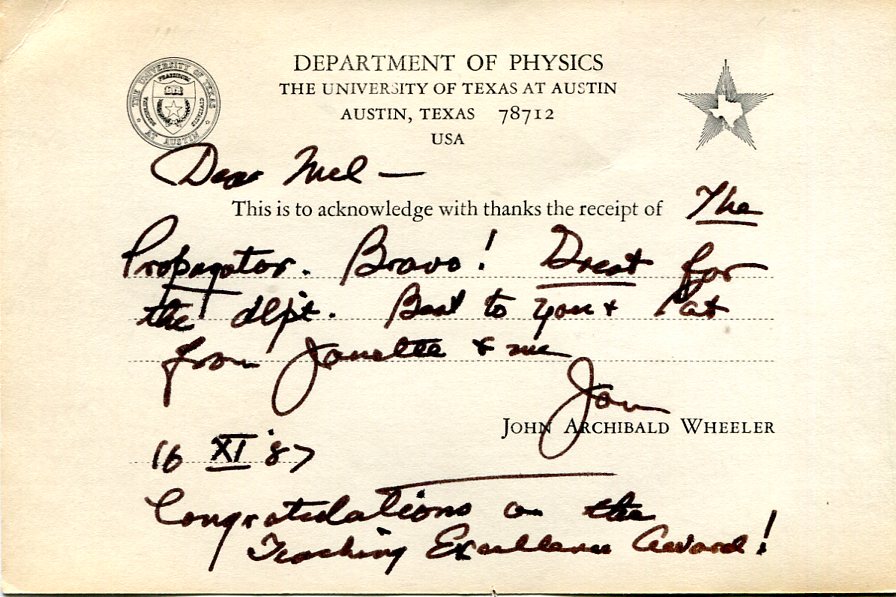 DEPARTMENT OF PHYSICS
THE UNIVERSITY OF TEXAS AT AUSTIN
AUSTIN, TEXAS 78712
USA
THE UNIVERSITY OF TEXAS
AT AUSTIN
Dear Mel —
This is to acknowledge with thanks the receipt of The
Propagator. Bravo! Great for
the dept. Best to you & Pat
from Janette & me
John
JOHN ARCHIBALD WHEELER
16 XI '87
Congratulations on the
Teaching Excellence Award!